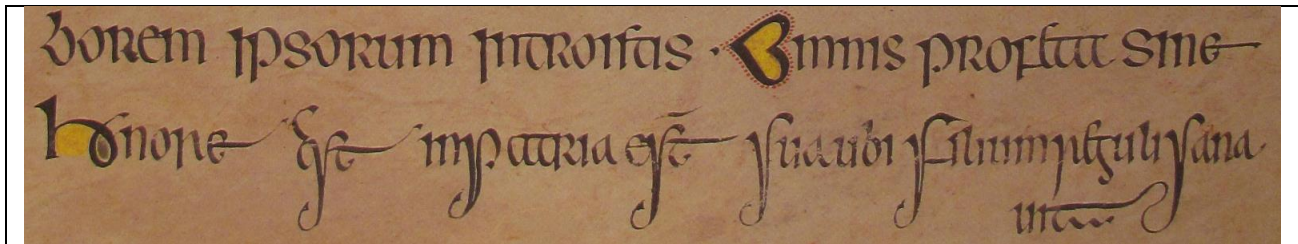 borem ipsorum introistis · Omnis profeta sine
honore est inpatria est sua ubi filium reguli sana
uit